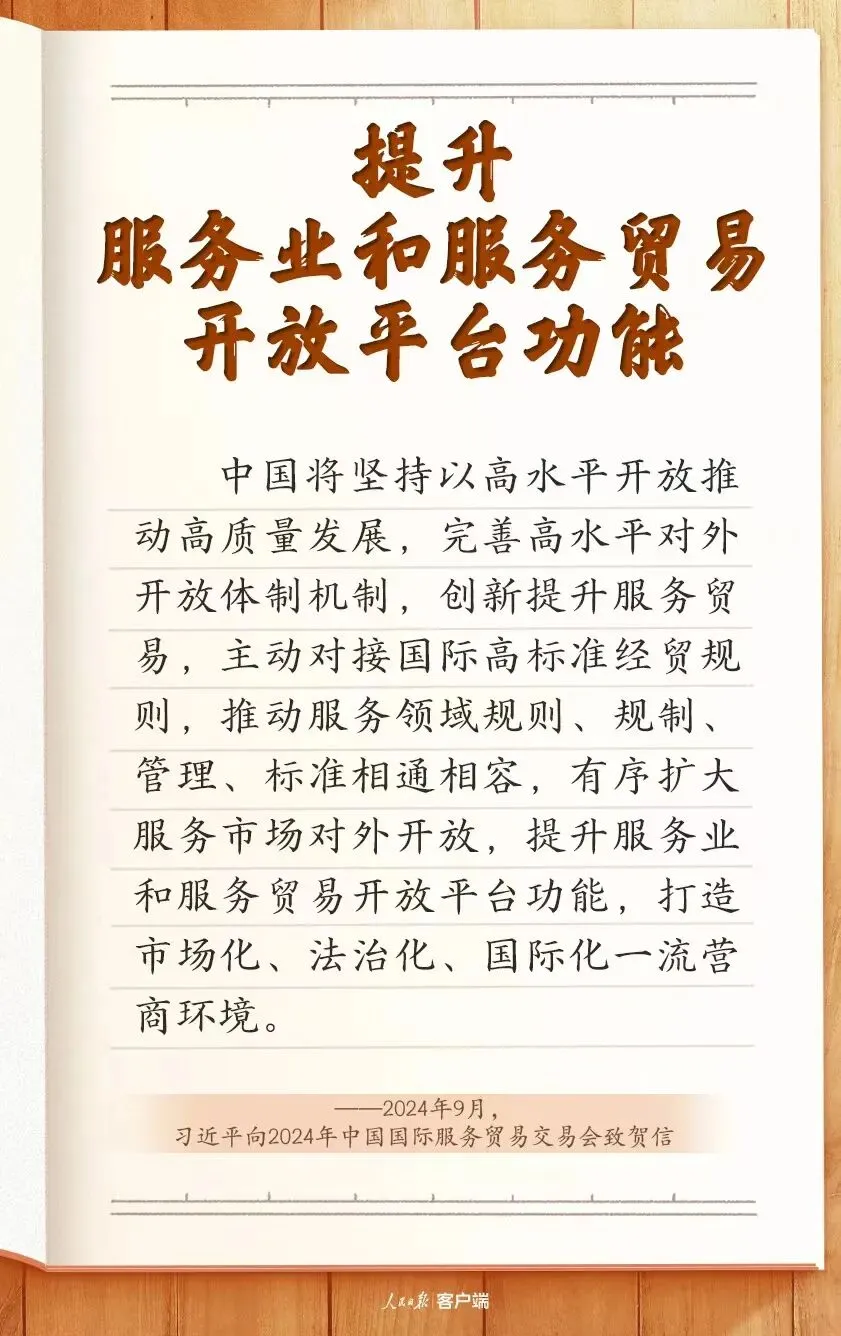 提升
服务业和服务贸易
开放平台功能
中国将坚持以高水平开放推
动高质量发展，完善高水平对外
开放体制机制，创新提升服务贸
易，主动对接国际高标准经贸规
则，推动服务领域规则、规制、
管理、标准相通相容，有序扩大
服务市场对外开放，提升服务业
和服务贸易开放平台功能，打造
市场化、法治化、国际化一流营
商环境。
——2024年9月，
习近平向2024年中国国际服务贸易交易会致贺信
人民日报 客户端